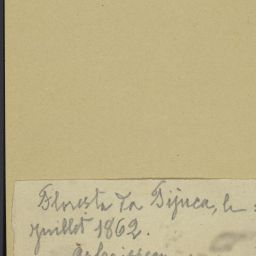 Floresta da Tijuca, le
juillet 1862.